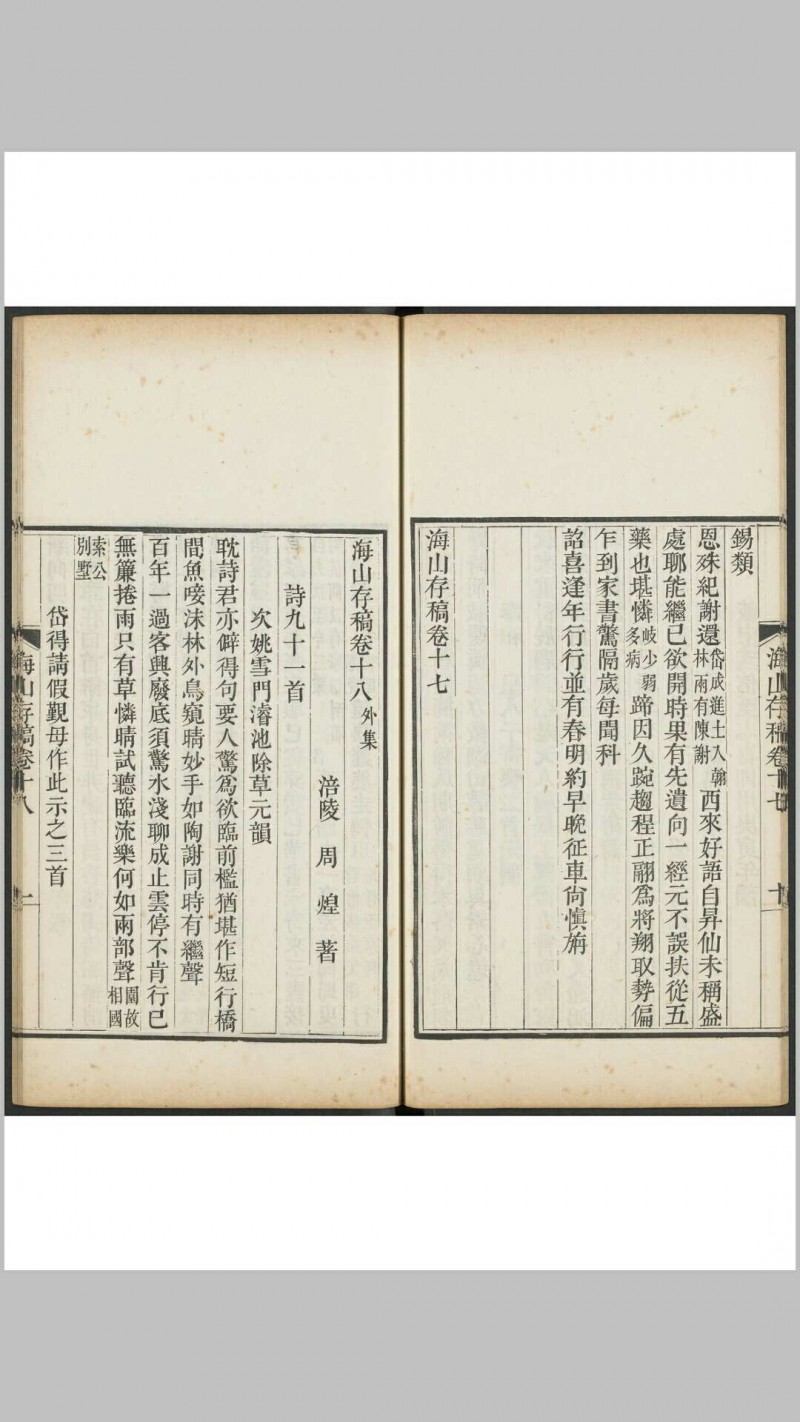 錫類
恩殊紀謝還岱成進士入翰林兩有陳謝西來好語自昇仙未稱盛
處聊能繼已欲開時果有先遺向一經元不誤扶從五
藥也堪憐岐少弱多病蹄因久踠趨程正翮為將翔取勢偏
乍到家書驚隔歲每聞科
詔喜逢年行行並有春明約早晚征車尙慎旃
海山存稿卷十七
海山存稿卷十七 十
海山存稿卷十八 外集
涪陵 周 煌 著
詩九十一首
次姚雪門濬池除草元韻
耽詩君亦僻得句要人驚為欲臨前檻猶堪作短行橋
間魚唼沫林外鳥窺晴妙手如陶謝同時有繼聲
百年一過客興廢底須驚水淺聊成止雲停不肯行已
無簾捲雨只有草憐晴試聽臨流樂何如兩部聲園故相國
索公別墅
岱得請假覲母作此示之三首
海山存稿卷十八 一